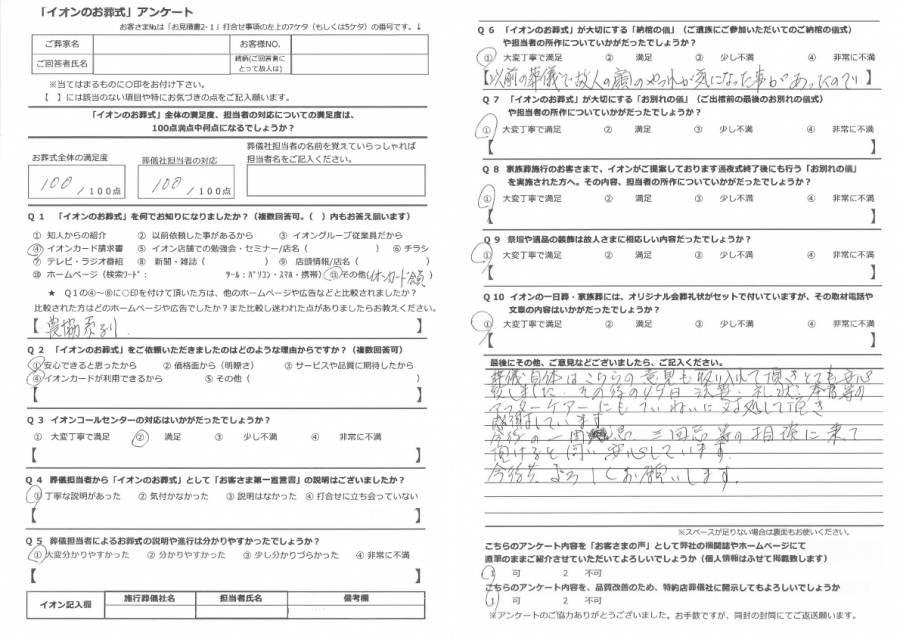 「イオンのお葬式」アンケート
お客さま№は「お見積書2-1」打合せ事項の左上の7ケタ(もしくは5ケタ)の番号です。↓
ご葬家名 お客様NO.
ご回答者氏名 続柄(ご回答者にとって故人は)
※当てはまるものに○印をお付け下さい。
【 】には該当のない項目や特にお気づきの点をご記入願います。
「イオンのお葬式」全体の満足度、担当者の対応についての満足度は、
100点満点中何点になるでしょうか?
お葬式全体の満足度 葬儀社担当者の対応 葬儀社担当者の名前を覚えていらっしゃれば
担当者名をご記入ください。
100 /100点 100 /100点
Q1 「イオンのお葬式」を何でお知りになりましたか?(複数回答可。( )内もお答え願います)
① 知人からの紹介 ② 以前依頼した事があるから ③ イオングループ従業員だから
④ イオンカード請求書 ⑤ イオン店舗での勉強会・セミナー/店名( ) ⑥ チラシ
⑦ テレビ・ラジオ番組 ⑧ 新聞・雑誌( ) ⑨ 店頭情報/店名( )
⑩ ホームページ(検索ワード: ツール:パソコン・スマホ・携帯) ⑪その他(イオンカード会員)
★ Q1の④~⑥に○印を付けて頂いた方は、他のホームページや広告などと比較されましたか?
比較された方はどのホームページや広告でしたか?また比較し迷われた点がありましたらお教えください。
【 農協系列. 】
Q2 「イオンのお葬式」をご依頼いただきましたのはどのような理由からですか?(複数回答可)
①安心できると思ったから ② 価格面から(明瞭さ) ③ サービスや品質に期待したから
④イオンカードが利用できるから ⑤ その他( )
【 】
Q3 イオンコールセンターの対応はいかがだったでしょうか?
① 大変丁寧で満足 ② 満足 ③ 少し不満 ④ 非常に不満
【 】
Q4 葬儀担当者から「イオンのお葬式」として「お客さま第一宣言書」の説明はございましたか?
① 丁寧な説明があった ② 気付かなかった ③ 説明はなかった ④ 打合せに立ち会っていない
【 】
Q5 葬儀担当者によるお葬式の説明や進行は分かりやすかったでしょうか?
①大変分かりやすかった ② 分かりやすかった ③ 少し分かりづらかった ④ 非常に不満
【 】
イオン記入欄 施行葬儀社名 担当者氏名 備考欄
Q6 「イオンのお葬式」が大切にする「納棺の儀」(ご遺族にご参加いただいてのご納棺の儀式)
や担当者の所作についていかがだったでしょうか?
① 大変丁寧で満足 ② 満足 ③ 少し不満 ④ 非常に不満
【以前の葬儀で故人の顔のやつれが気になった事があったので】
Q7 「イオンのお葬式」が大切にする「お別れの儀」(ご出棺前の最後のお別れの儀式)
や担当者の所作についていかがだったでしょうか?
① 大変丁寧で満足 ② 満足 ③ 少し不満 ④ 非常に不満
【 】
Q8 家族葬施行のお客さまで、イオンがご提案しております通夜式終了後にも行う「お別れの儀」
を実施された方へ。その内容、担当者の所作についていかがだったでしょうか?
① 大変丁寧で満足 ② 満足 ③ 少し不満 ④ 非常に不満
【 】
Q9 祭壇や遺品の装飾は故人さまに相応しい内容だったでしょうか?
① 大変丁寧で満足 ② 満足 ③ 少し不満 ④ 非常に不満
【 】
Q10 イオンの一日葬・家族葬には、オリジナル会葬礼状がセットで付いていますが、その取材電話や
文章の内容はいかがだったでしょうか?
① 大変丁寧で満足 ② 満足 ③ 少し不満 ④ 非常に不満
【 】
最後にその他、ご意見などございましたら、ご記入ください。
葬儀自体はこちらの意見も取り入れて頂きとても安心
致しました. その後の49日 法要. 礼状. 本位牌等の
アフターケアーにもていねいに対処して頂き
感謝しています
今後の一周忌. 三回忌等の相談に乗て
頂けると伺い安心しています.
今後共よろしくお願いします.
※スペースが足りない場合は裏面もお使いください。
こちらのアンケート内容を「お客さまの声」として弊社の機関誌やホームページにて
直筆のままご紹介させていただいてよろしいでしょうか(個人情報はふせて掲載致します)
1 可 2 不可
こちらのアンケート内容を、品質改善のため、特約店葬儀社に開示してもよろしいでしょうか
1 可 2 不可
※アンケートのご協力ありがとうございました。お手数ですが、同封の封筒にてご返送願います。